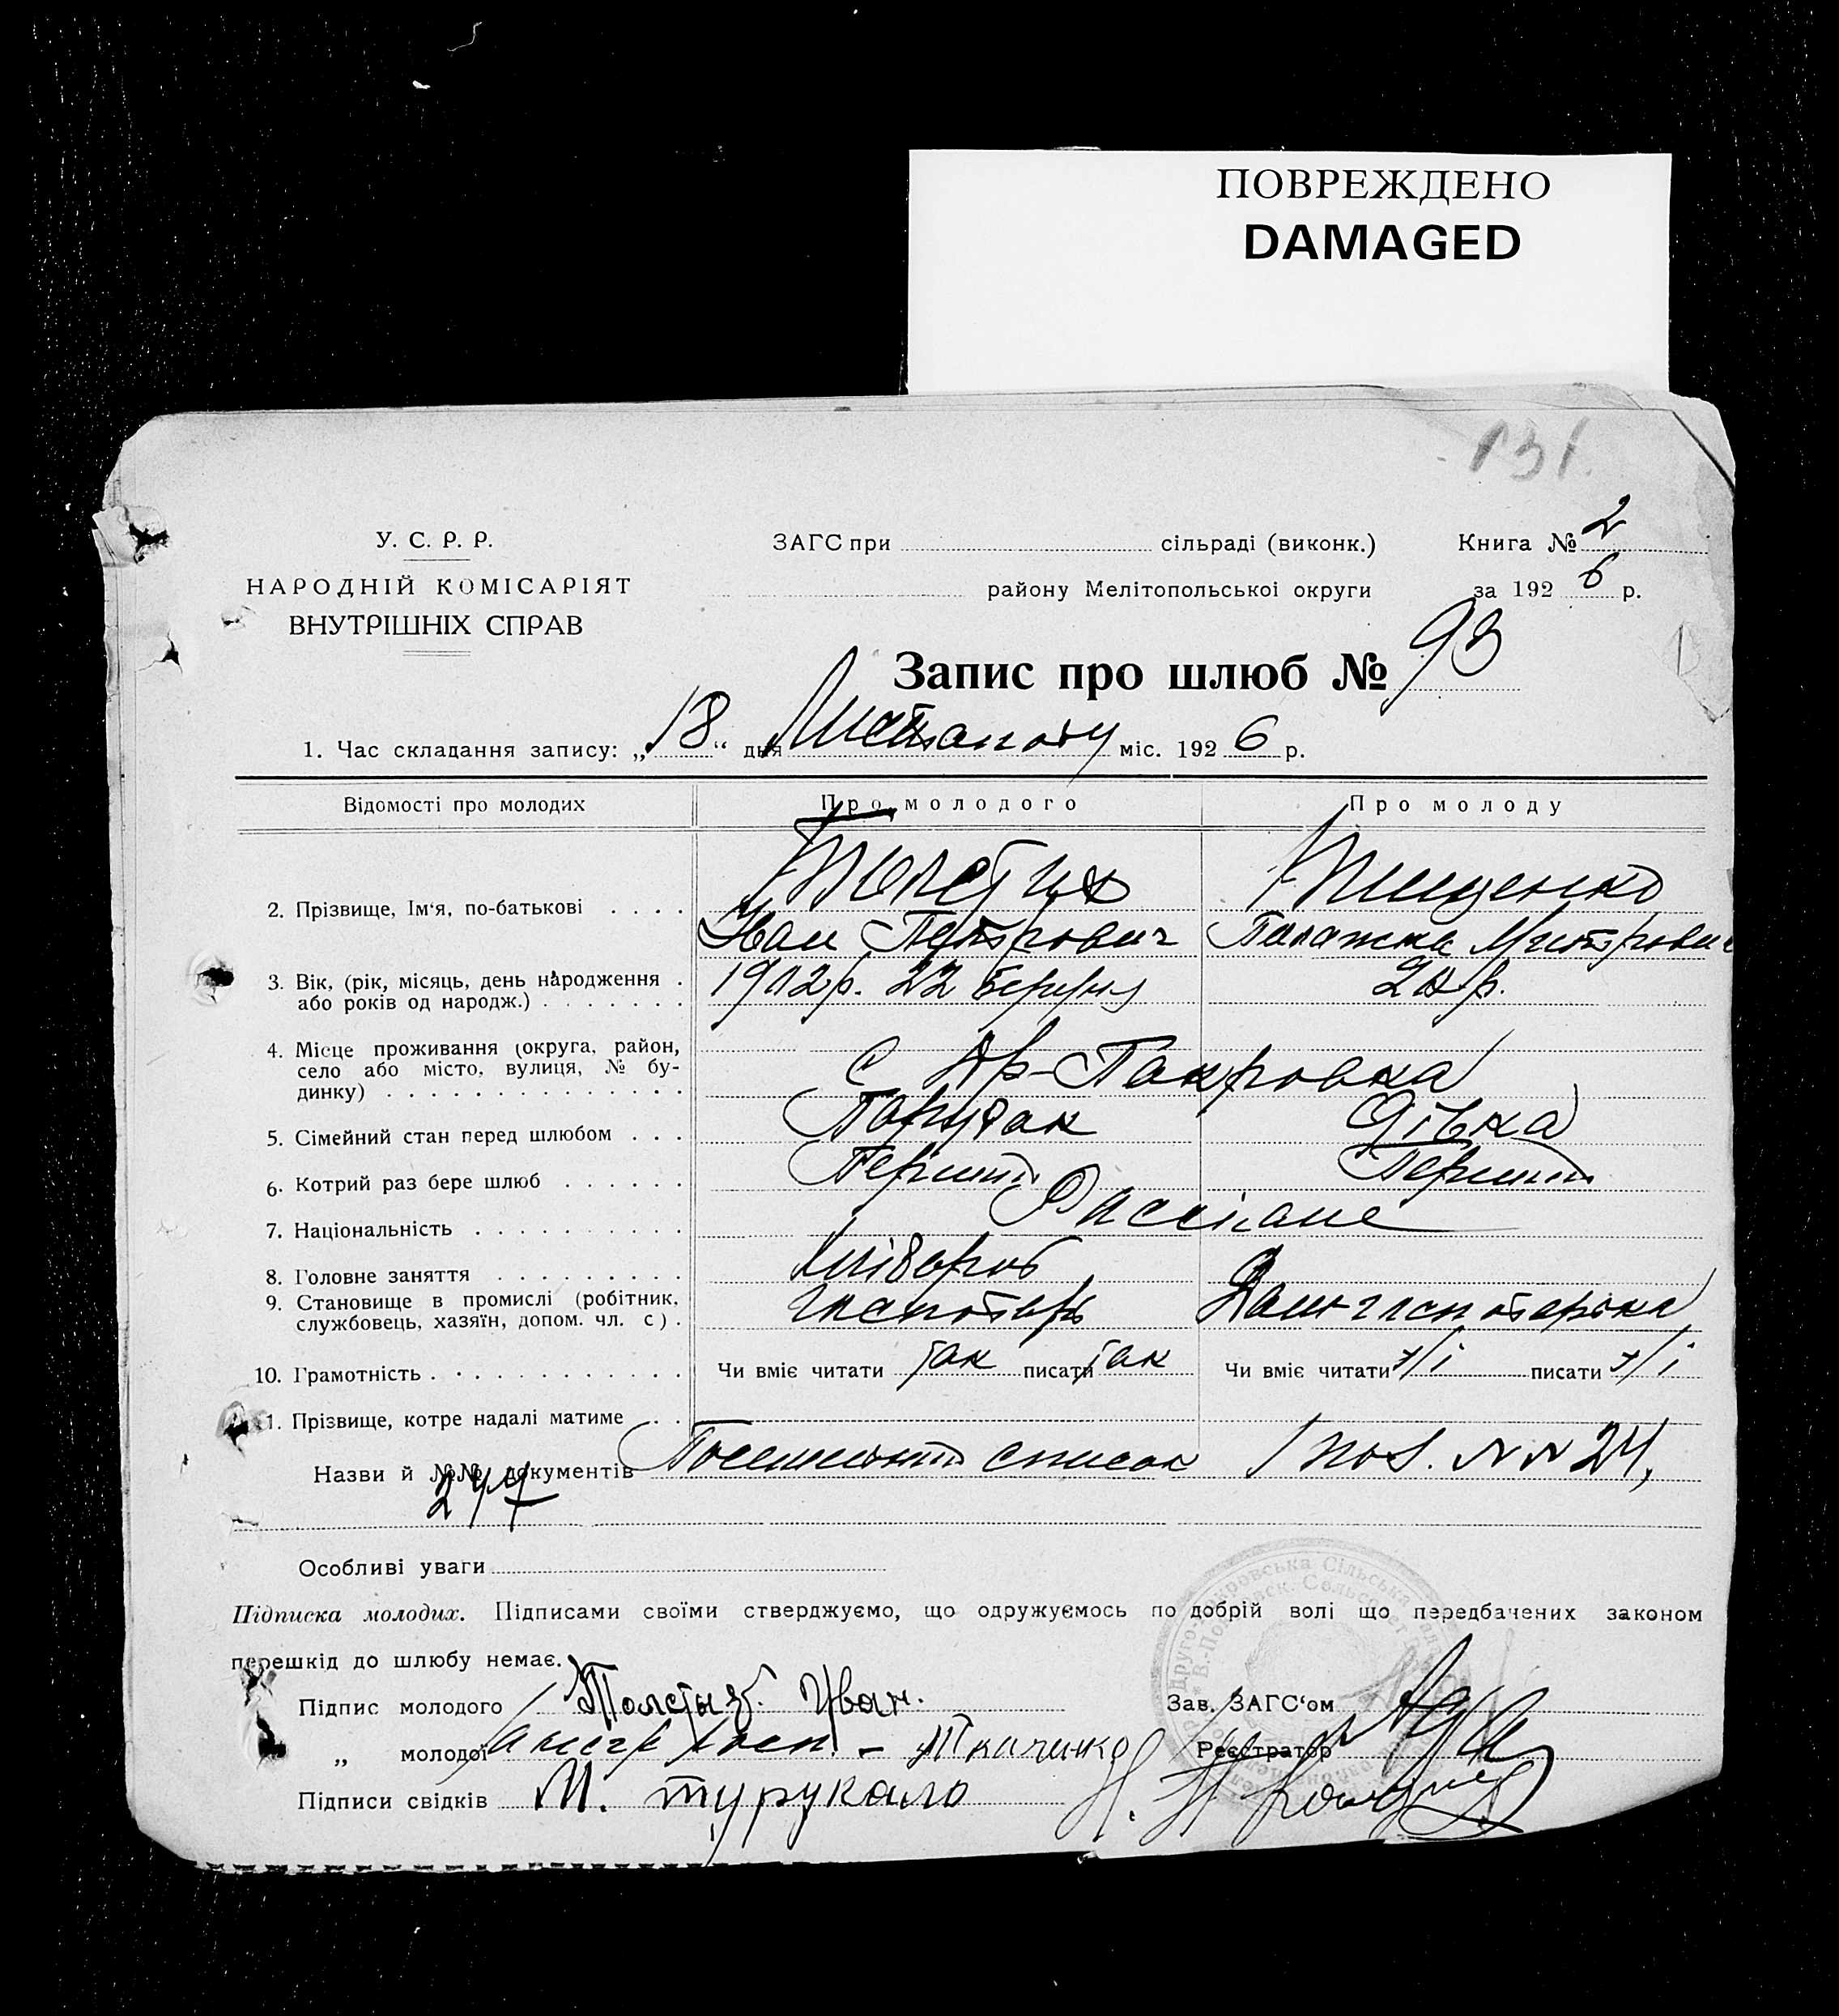 ПОВРЕЖДЕНО
DAMAGED
131.
У. С. Р. Р.
НАРОДНІЙ КОМІСАРІЯТ
ВНУТРІШНІХ СПРАВ
ЗАГС при сільраді (виконк.)
району Мелітопольської округи
Книга № 2
за 1926 р.
Запис про шлюб № 93
1. Час складання запису: „18“ дня Листопаду міс. 1926 р.
Відомості про молодих Про молодого Про молоду
2. Прізвище, Ім‘я, по-батькові Толстих Тищенко
Іван Петрович Палажка
3. Вік, (рік, місяць, день народження 1902р. 22
або років од народж.)
4. Місце проживання (округа, район,
село або місто, вулиця, № бу-
динку) С Др-Покровка
5. Сімейний стан перед шлюбом Парубок Дівка
6. Котрий раз бере шлюб Перший Перший
7. Національність
8. Головне заняття Хлібороб
9. Становище в промислі (робітник,
службовець, хазяїн, допом. чл. с)
10. Грамотність Чи вміє читати так писати так Чи вміє читати н/і писати н/і
11. Прізвище, котре надалі матиме
Назви й №№ документів список №№ 24,
247
Особливі уваги
Підписка молодих. Підписами своїми стверджуємо, що одружуємось по добрій волі що передбачених законом
перешкід до шлюбу немає.
Підпис молодого Іван.
Зав. ЗАГС‘ом
„ молодої - Ткаченко
Реєстратор
Підписи свідків М. турукало